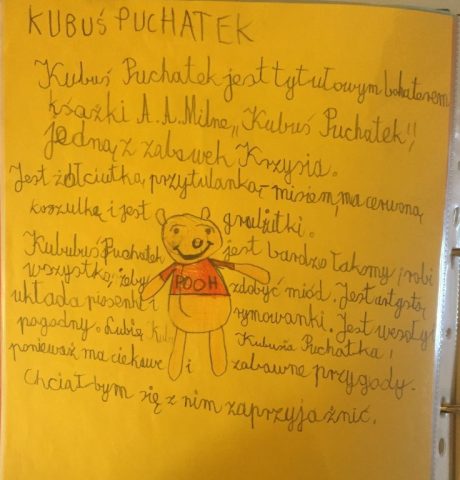 KUBUŚ PUCHATEK
Kubuś Puchatek jest tytułowym bohaterem
książki A.A.Milne,, Kubuś Puchatek",
jedną z zabawek Krzysia.
Jest żółciutką przytulanką - misiem, ma czerwoną
koszulkę i jest grubiutki.
Kububuś Puchatek jest bardzo łakomy i robi
wszystko, żeby zdobyć miód. Jest artystą,
układa piosenki i rymowanki. Jest wesoły i
pogodny. Lubię Kubusia Puchatka,
ponieważ ma ciekawe i zabawne przygody.
Chciał bym się z nim zaprzyjaźnić.
POOH